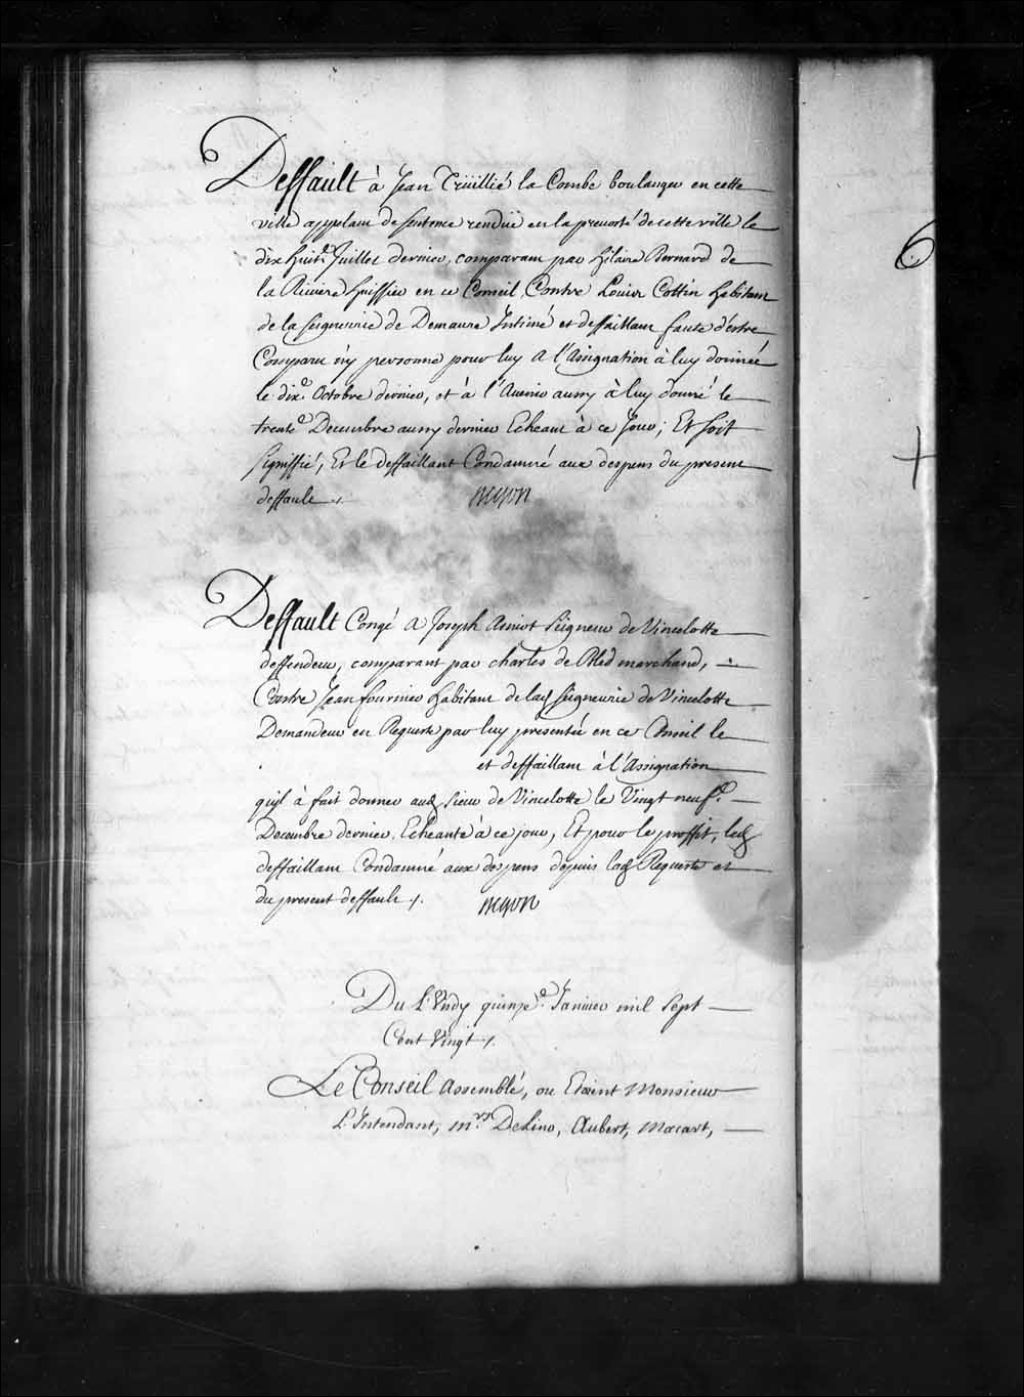 Deffault à Jean Trüillié la Combe boulanger en cette
ville appelant de sentence rendüe en la prevosté de cette ville le
dix huite Juillet dernier, comparant par Hilaire Bernard de
la Riviere huissier en ce Conseil, Contre Louis Cottin habitant
de la seigneurie de Demaure Intimé et deffaillant faute d'estre
Comparu n'y personne pour luy a l'assignation à luy donnée
le dixe. Octobre dernier, et à l'avenir aussy à luy donné le
trente Decembre aussy dernier Echeant à ce Jour; Et soit
signiffié, Et le deffaillant Condamné aux despens du present
deffault ./.
Begon
Deffault Congé a Joseph Amiot seigneur de Vincelotte
deffendeur, comparant par charles de Bled marchand,
Contre Jean fournier habitant de lad seigneurie de Vincelotte
Demandeur en Requeste par luy presentée en ce Conseil le
et deffaillant à l'assignation
qu'jl à fait donner aud sieur de Vincelotte le Vingt neufe.
Decembre dernier, Echeante à ce jour, Et pour le proffit, led
deffaillant Condamné aux despens depuis lad Requeste et
du present deffault ./.
Begon
Du Lundy quinze. Janvier mil sept
Cent Vingt ./.
Le Conseil assemblé, ou Etoient Monsieur
L'Intendant, Mrs. Delino, Aubert, Macart,
6
+